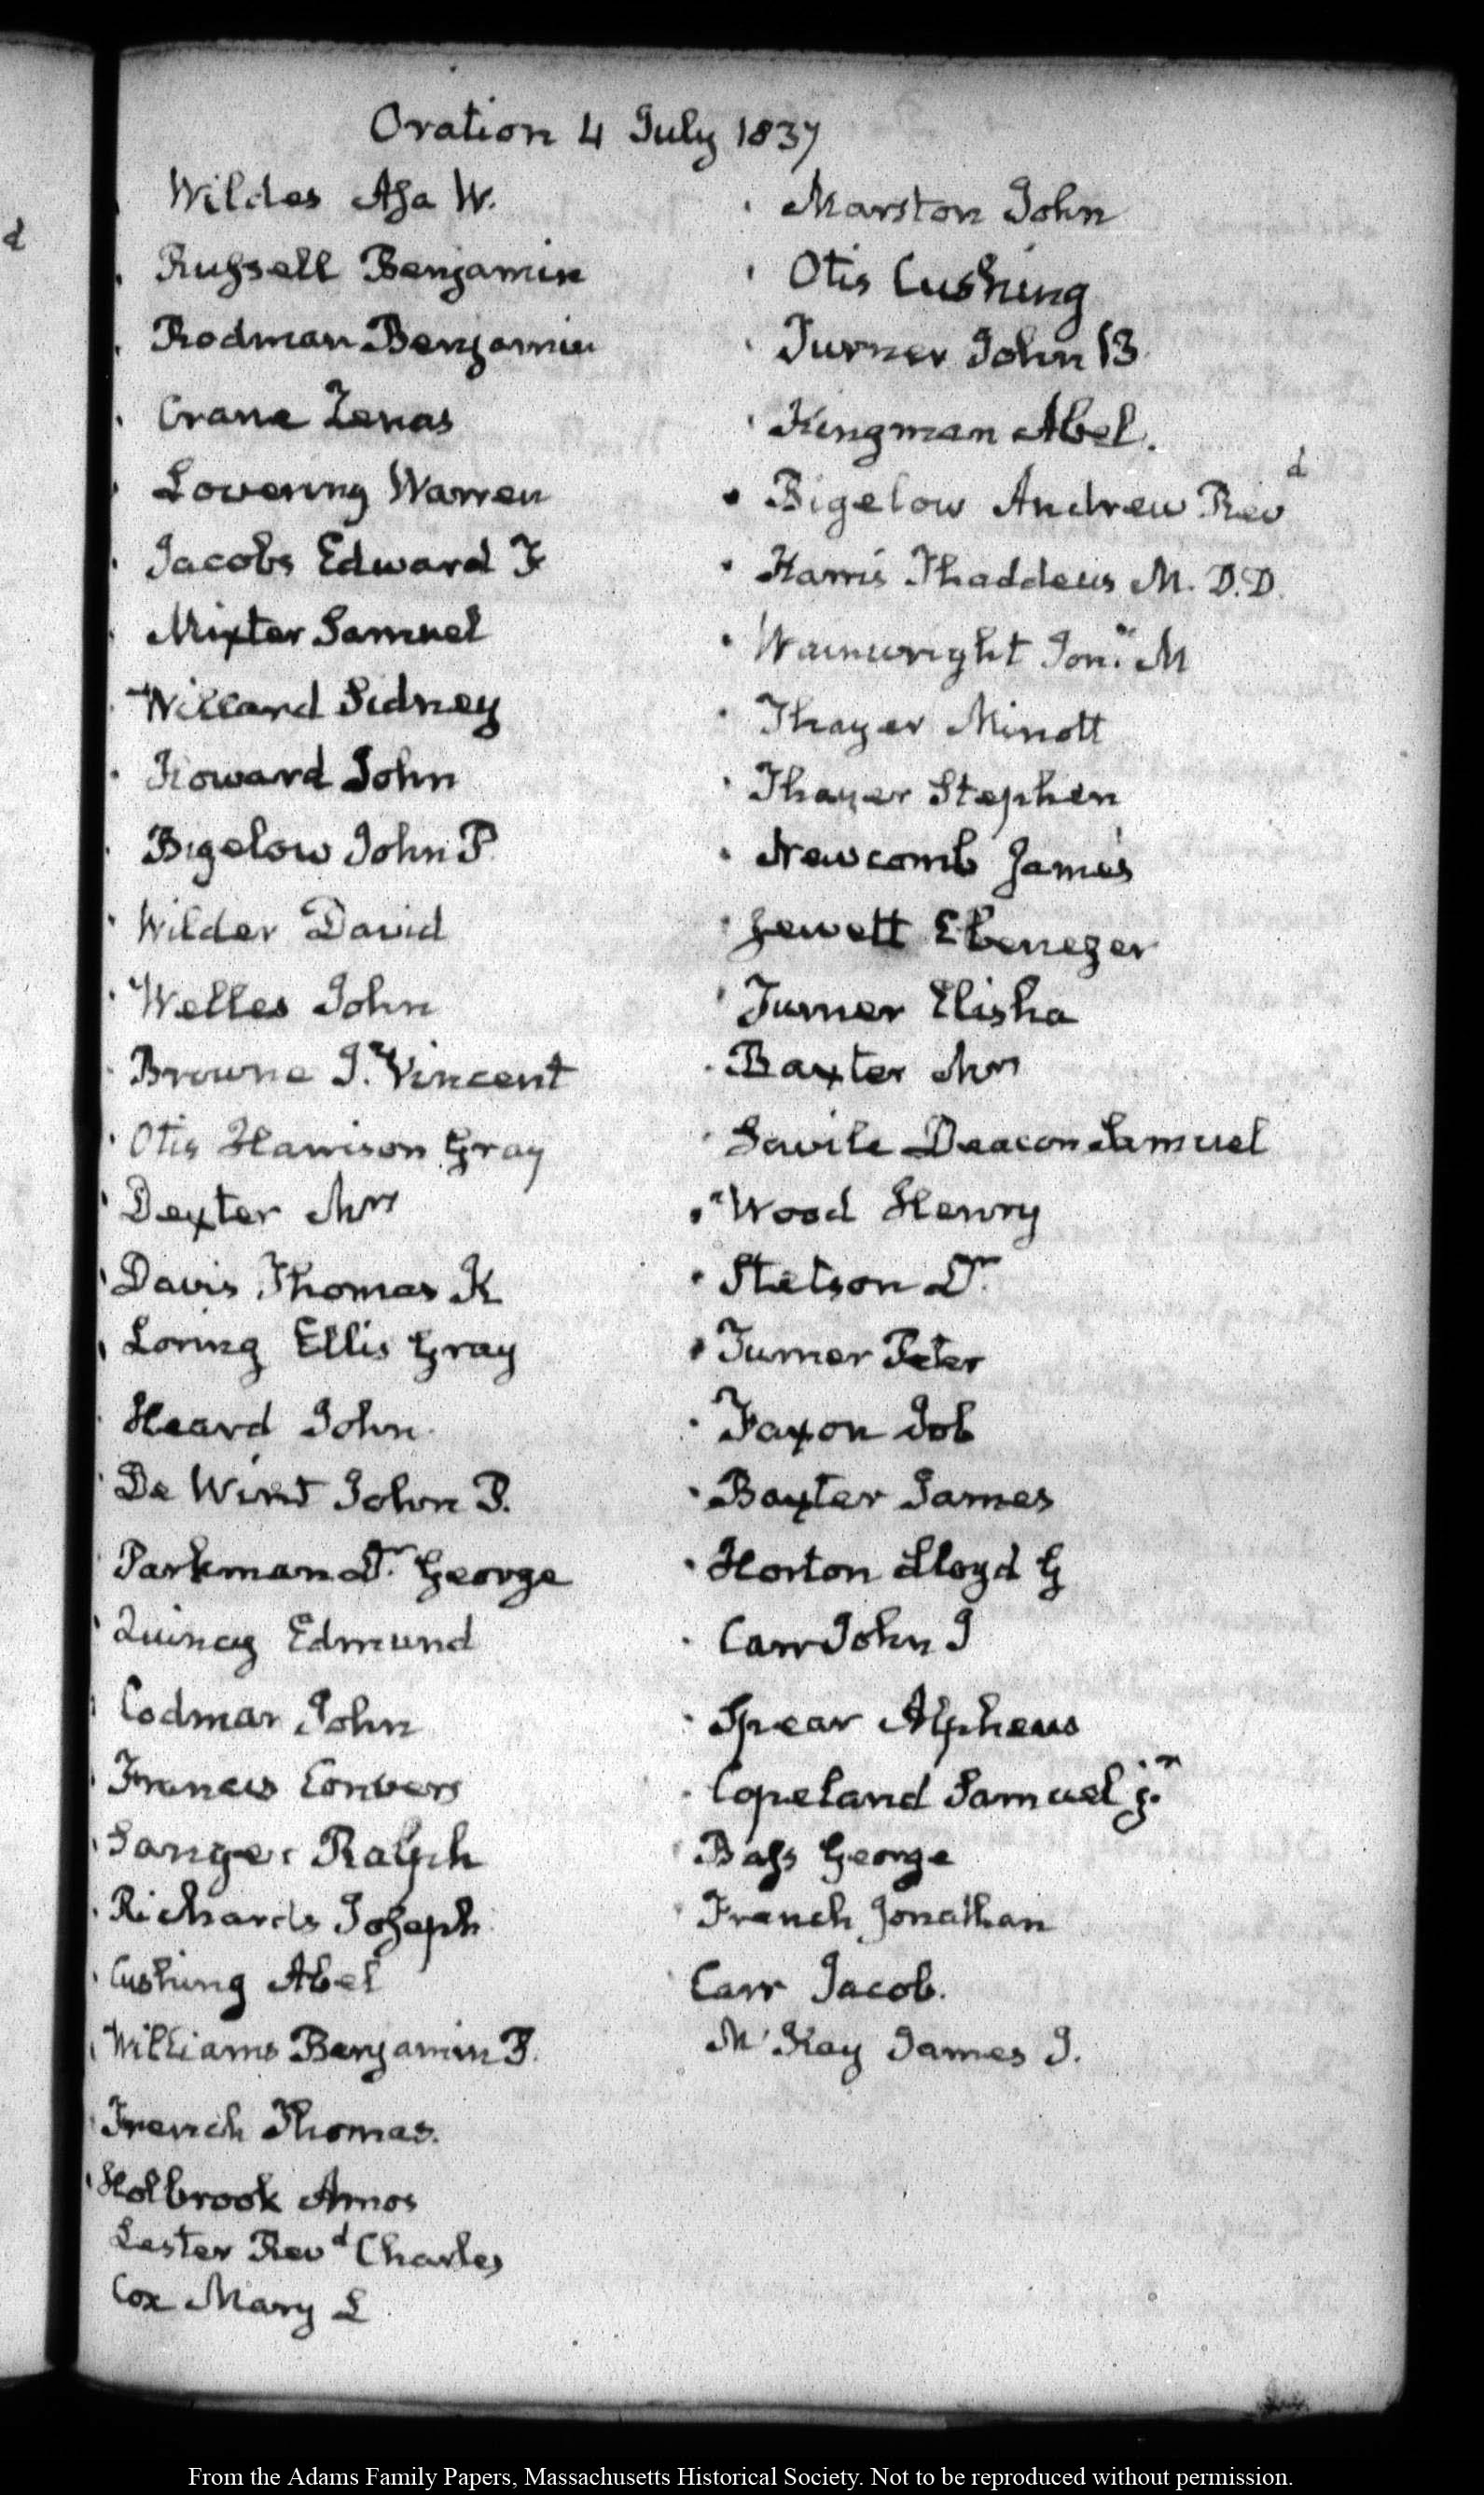 d
Oration 4 July 1837
Wildes Asa W.
Russell Benjamin
Rodman Benjamin
Crane Zenas
Lovering Warren
Jacobs Edward F
Mixter Samuel
Willard Sidney
Howard John
Bigelow John P.
Wilder David
Welles John
Browne J. Vincent
Otis Harrison Gray
Dexter Mrs
Davis Thomas K
Loring Ellis Gray
Heard John
De Wint John P.
Parkman Dr. George
Quincy Edmund
Codman John
Francis Convers
Sanger Ralph
Richards Joseph
Cushing Abel
Williams Benjamin F.
French Thomas.
Holbrook Amos
Lester Revd Charles
Cox Mary L
Marston John
Otis Cushing
Turner John B
Kingman Abel.
Bigelow Andrew Revd
Harris Thaddeus M. D.D.
Wainwright Jon.n M
Thayer Minott
Thayer Stephen
Newcomb James
Jewett Ebenezer
Turner Elisha
Baxter Mrs
Savile Deacon Samuel
Wood Henry
Stetson Dr.
Turner Peter
Faxon Job
Baxter James
Horton Lloyd G
Carr John J
Spear Alpheus
Copeland Samuel j.r
Bass George
French Jonathan
Carr Jacob.
McKay James J.
From the Adams Family Papers, Massachusetts Historical Society. Not to be reproduced without permission.